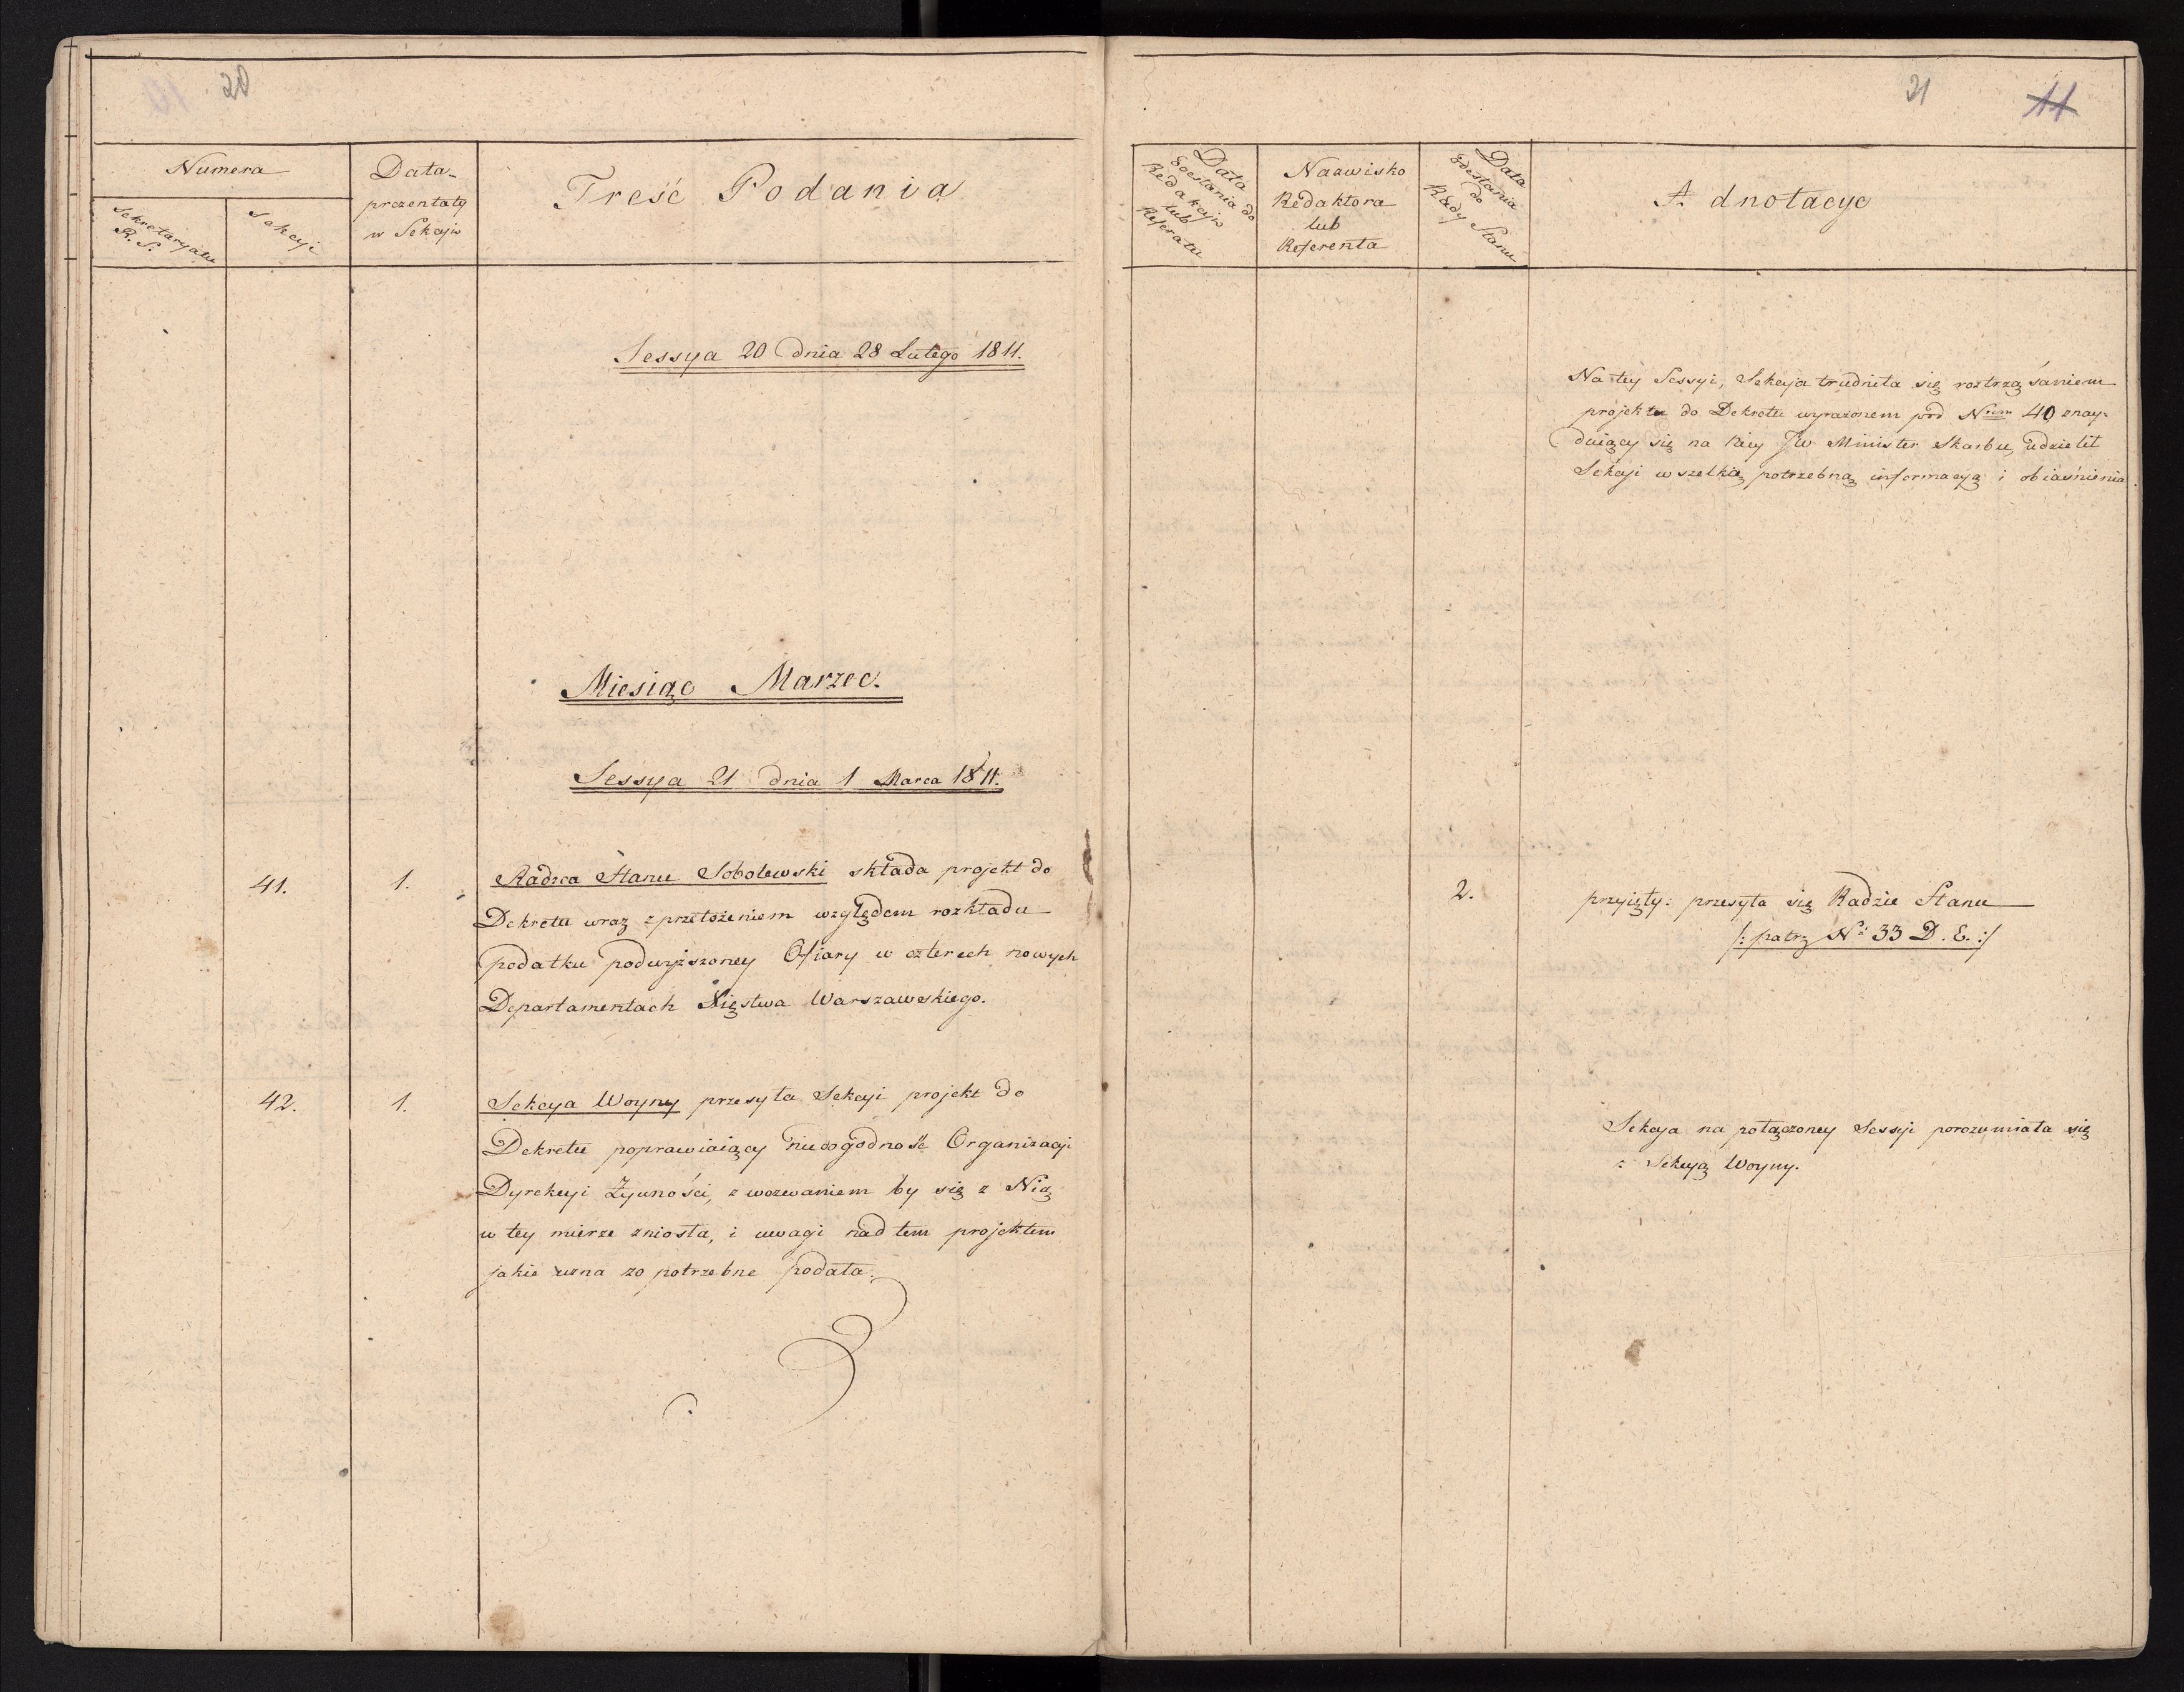 20
Numera
Sekretaryatu
R. S.
Sekcyi
Data
prezentaty
w Sekcyi
Treść Podania
Sessya 20 dnia 28 Lutego 1811.
Miesiąc Marzec.
Sessya 21 dnia 1 Marca 1811.
41.
1.
Radzca Stanu Sobolewski składa projekt do
Dekretu wraz z przełożeniem względem rozkładu
podatku podwyższoney Ofiary w czterech nowych
Departamentach Xięstwa Warszawskiego.
42.
1.
Sekcya Woyny przesyła Sekcyi projekt do
Dekretu poprawiaiący niedogodność Organizacyi
Dyrekcyi Żywności, z wezwaniem by się z Nią
w tey mierze zniosła, i uwagi nad tem projektem
jakie uzna za potrzebne podała.
21
11
Data
Odesłania do
Redakcyi
lub
Referatu
Nazwisko
Redaktora
lub
Referenta
Data
Odesłania
do
Rady Stanu
Adnotacye
Na tey Sessyi, Sekcya trudniła się roztrząsaniem
projektu do Dekretu wyrażonem pod Nrem 40 znay-
duiący się na niey JW Minister Skarbu, udzielił
Sekcyi wszelkie potrzebną informacyą i obiaśnienia.
2.
przyięty: przesyła się Radzie Stanu
/: patrz No 33 D. E. :/
Sekcya na połączoney Sessyi porozumiała się
z Sekcyą Woyny.